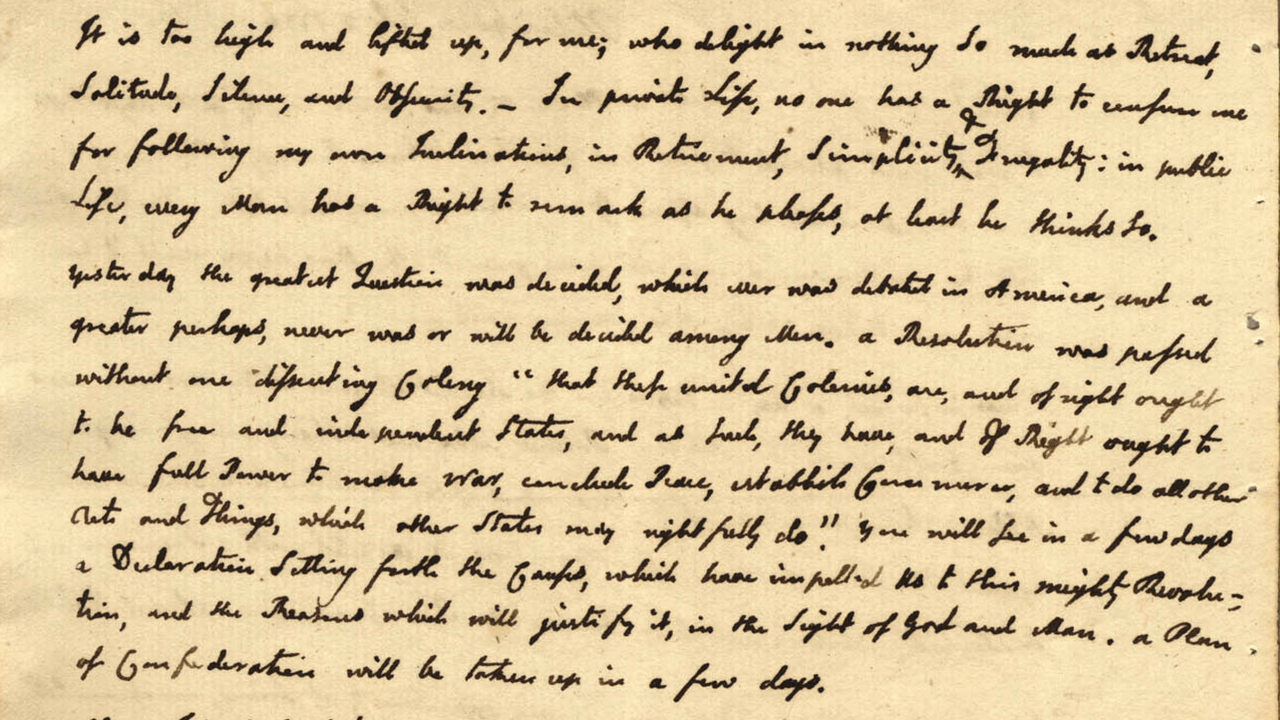 It is too high and lifted up, for me; who delight in nothing so much as Retreat,
Solitude, Silence, and Obscurity. — In private Life, no one has a Right to censure me
for following my own Inclinations, in Retirement, Simplicity, & Frugality: in public
Life, every Man has a Right to remark as he pleases, at least he thinks so.
Yesterday the greatest Question was decided, which ever was debated in America, and a
greater perhaps, never was or will be decided among Men. a Resolution was passed
without one dissenting Colony "that these united Colonies, are, and of right ought
to be free and independent States, and as such, they have, and of Right ought to
have full Power to make War, conclude Peace, establish Commerce, and to do all other
Acts and Things, which other States may rightfully do". You will see in a few days
a Declaration setting forth the Causes, which have impell'd Us to this mighty Revolu-
tion, and the Reasons which will justify it, in the Sight of God and Man. a Plan
of Confederation will be taken up in a few days.